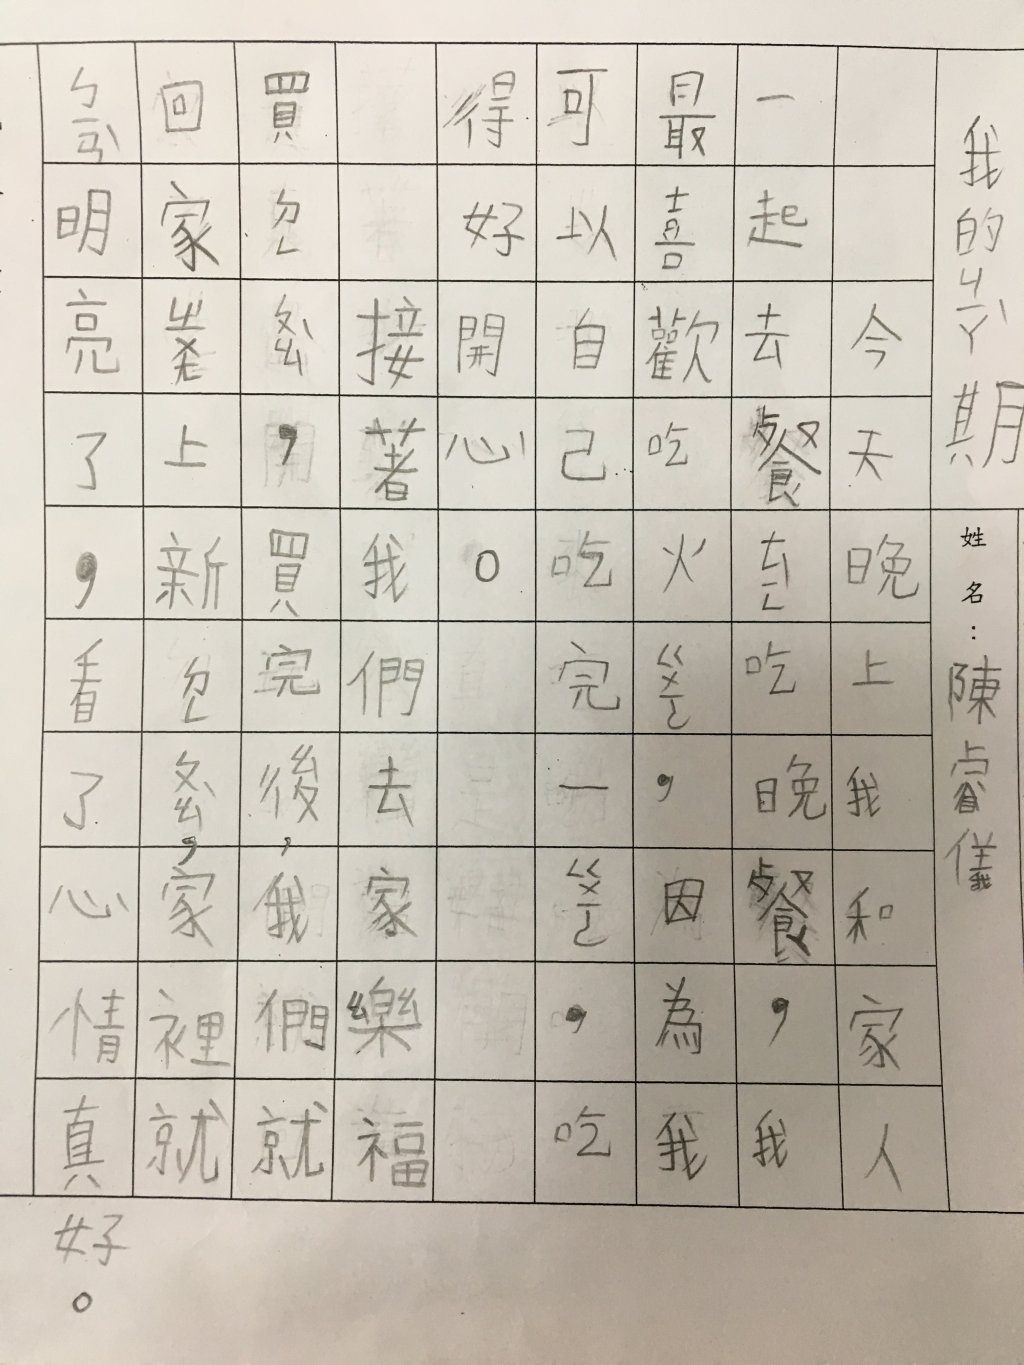 我的ㄐㄧㄚˋ期
姓名：陳睿儀
今天晚上我和家人
一起去餐ㄊㄧㄥ吃晚餐，我
最喜歡吃火ㄍㄨㄛ，因為我
可以自己吃完一ㄍㄨㄛ，吃
得好開心。
接著我們去家樂福
買ㄉㄥㄆㄠˋ，買完後，我們就
回家ㄓㄨㄤ上新ㄉㄥㄆㄠˋ，家裡就
ㄅㄧㄢˋ明亮了，看了心情真好。